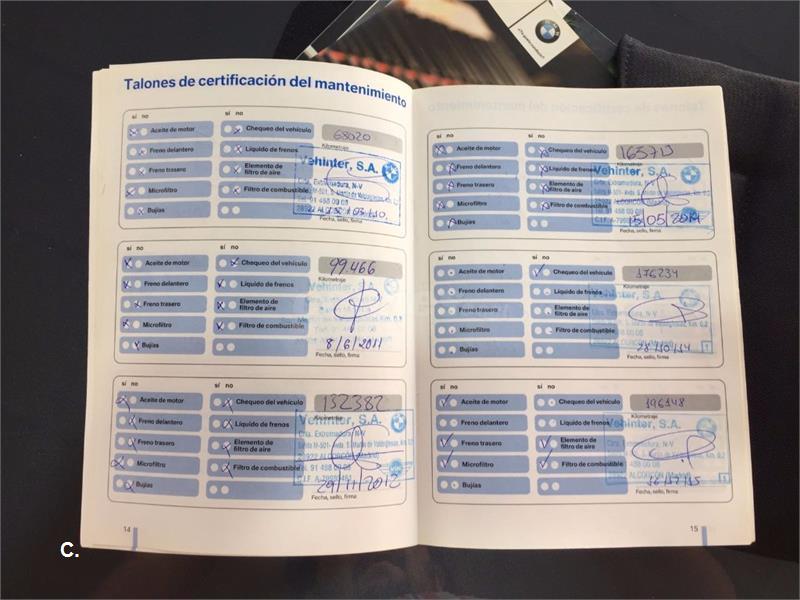 Talones de certificación del mantenimiento
sí no
Aceite de motor
Chequeo del vehículo
68020
Kilometraje
Freno delantero
Líquido de frenos
Vehinter, S.A.
Freno trasero
Elemento de filtro de aire
Ctra. Extremadura, N-V
Microfiltro
Filtro de combustible
Bujías
Fecha, sello, firma
sí no
Aceite de motor
Chequeo del vehículo
99.466
Kilometraje
Freno delantero
Líquido de frenos
Vehinter, S.A.
Freno trasero
Elemento de filtro de aire
Microfiltro
Filtro de combustible
Bujías
8/6/2011
Fecha, sello, firma
sí no
Aceite de motor
Chequeo del vehículo
132382
Kilometraje
Freno delantero
Líquido de frenos
Vehinter, S.A.
Ctra. Extremadura, N-V
Freno trasero
Elemento de filtro de aire
28922 ALCORCON (Madrid)
Microfiltro
Filtro de combustible
Bujías
29/11/2012
Fecha, sello, firma
14
sí no
Aceite de motor
Chequeo del vehículo
165713
Kilometraje
Freno delantero
Líquido de frenos
Vehinter, S.A.
Freno trasero
Elemento de filtro de aire
Ctra. Extremadura, N-V
Microfiltro
Filtro de combustible
Bujías
Fecha, sello, firma
sí no
Aceite de motor
Chequeo del vehículo
176234
Kilometraje
Freno delantero
Líquido de frenos
Vehinter, S.A.
Freno trasero
Elemento de filtro de aire
Ctra. Extremadura, N-V
Microfiltro
Filtro de combustible
Bujías
28/10/14
Fecha, sello, firma
sí no
Aceite de motor
Chequeo del vehículo
196148
Kilometraje
Freno delantero
Líquido de frenos
Vehinter, S.A.
Freno trasero
Elemento de filtro de aire
Ctra. Extremadura, N-V
Microfiltro
Filtro de combustible
Bujías
Fecha, sello, firma
15
C.